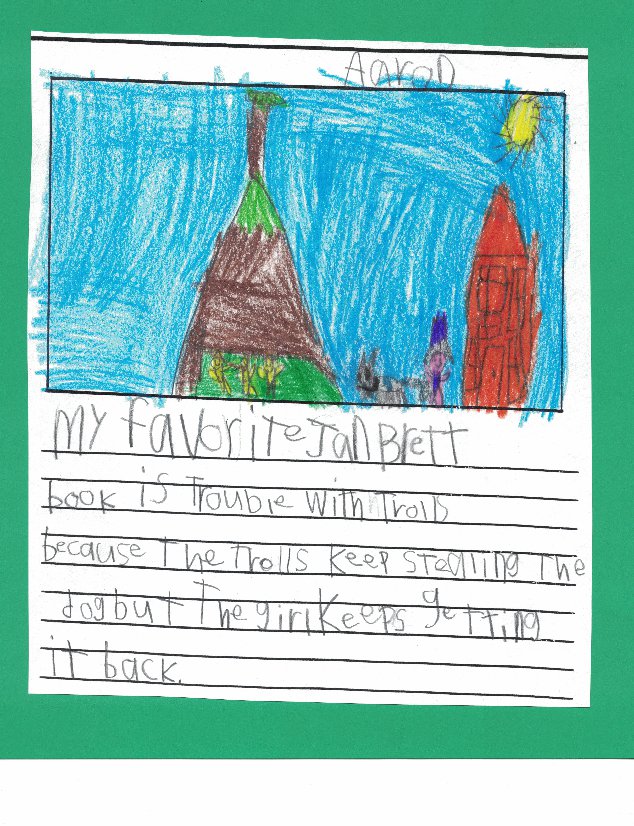 Aaron
My favorite Jan Brett
book is Trouble With Trolls
because The Trolls keep stealing The
dog but The girl keeps getting
it back.